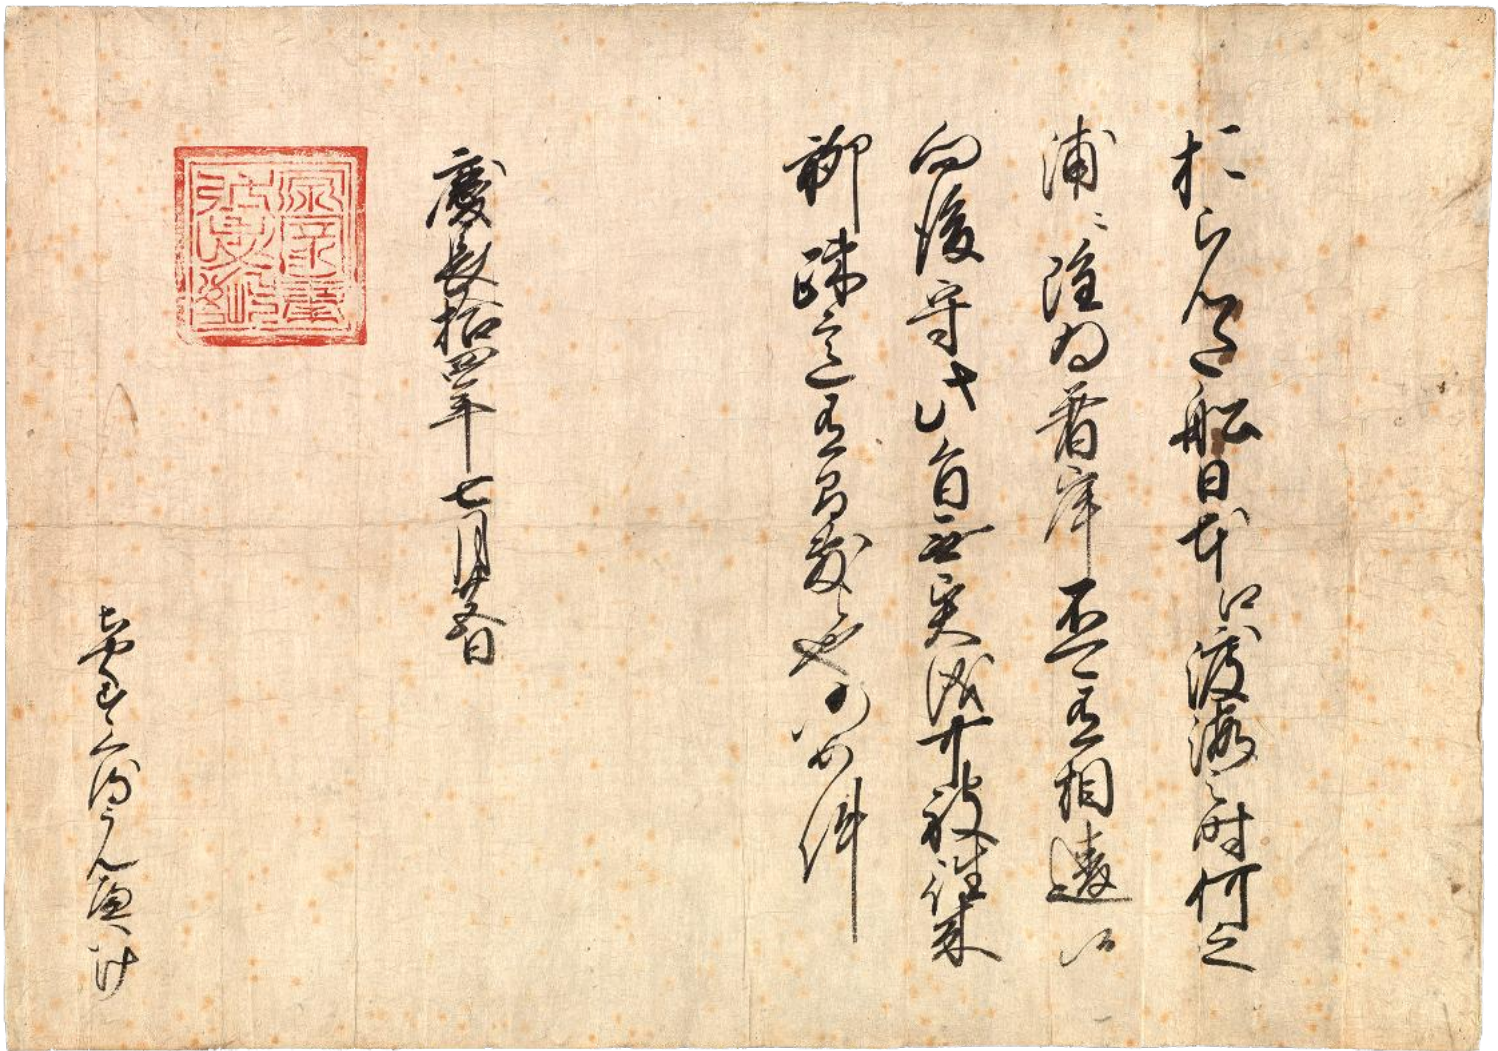 おらんだ船日本江渡海之時何之
浦々雖為着岸不可有相違候
向後守此旨無異儀可被往来
聊疎意有間敷候也仍如件
慶長拾四年七月廿五日
源家康弘忠恕
ちやくすくるうんへいけ